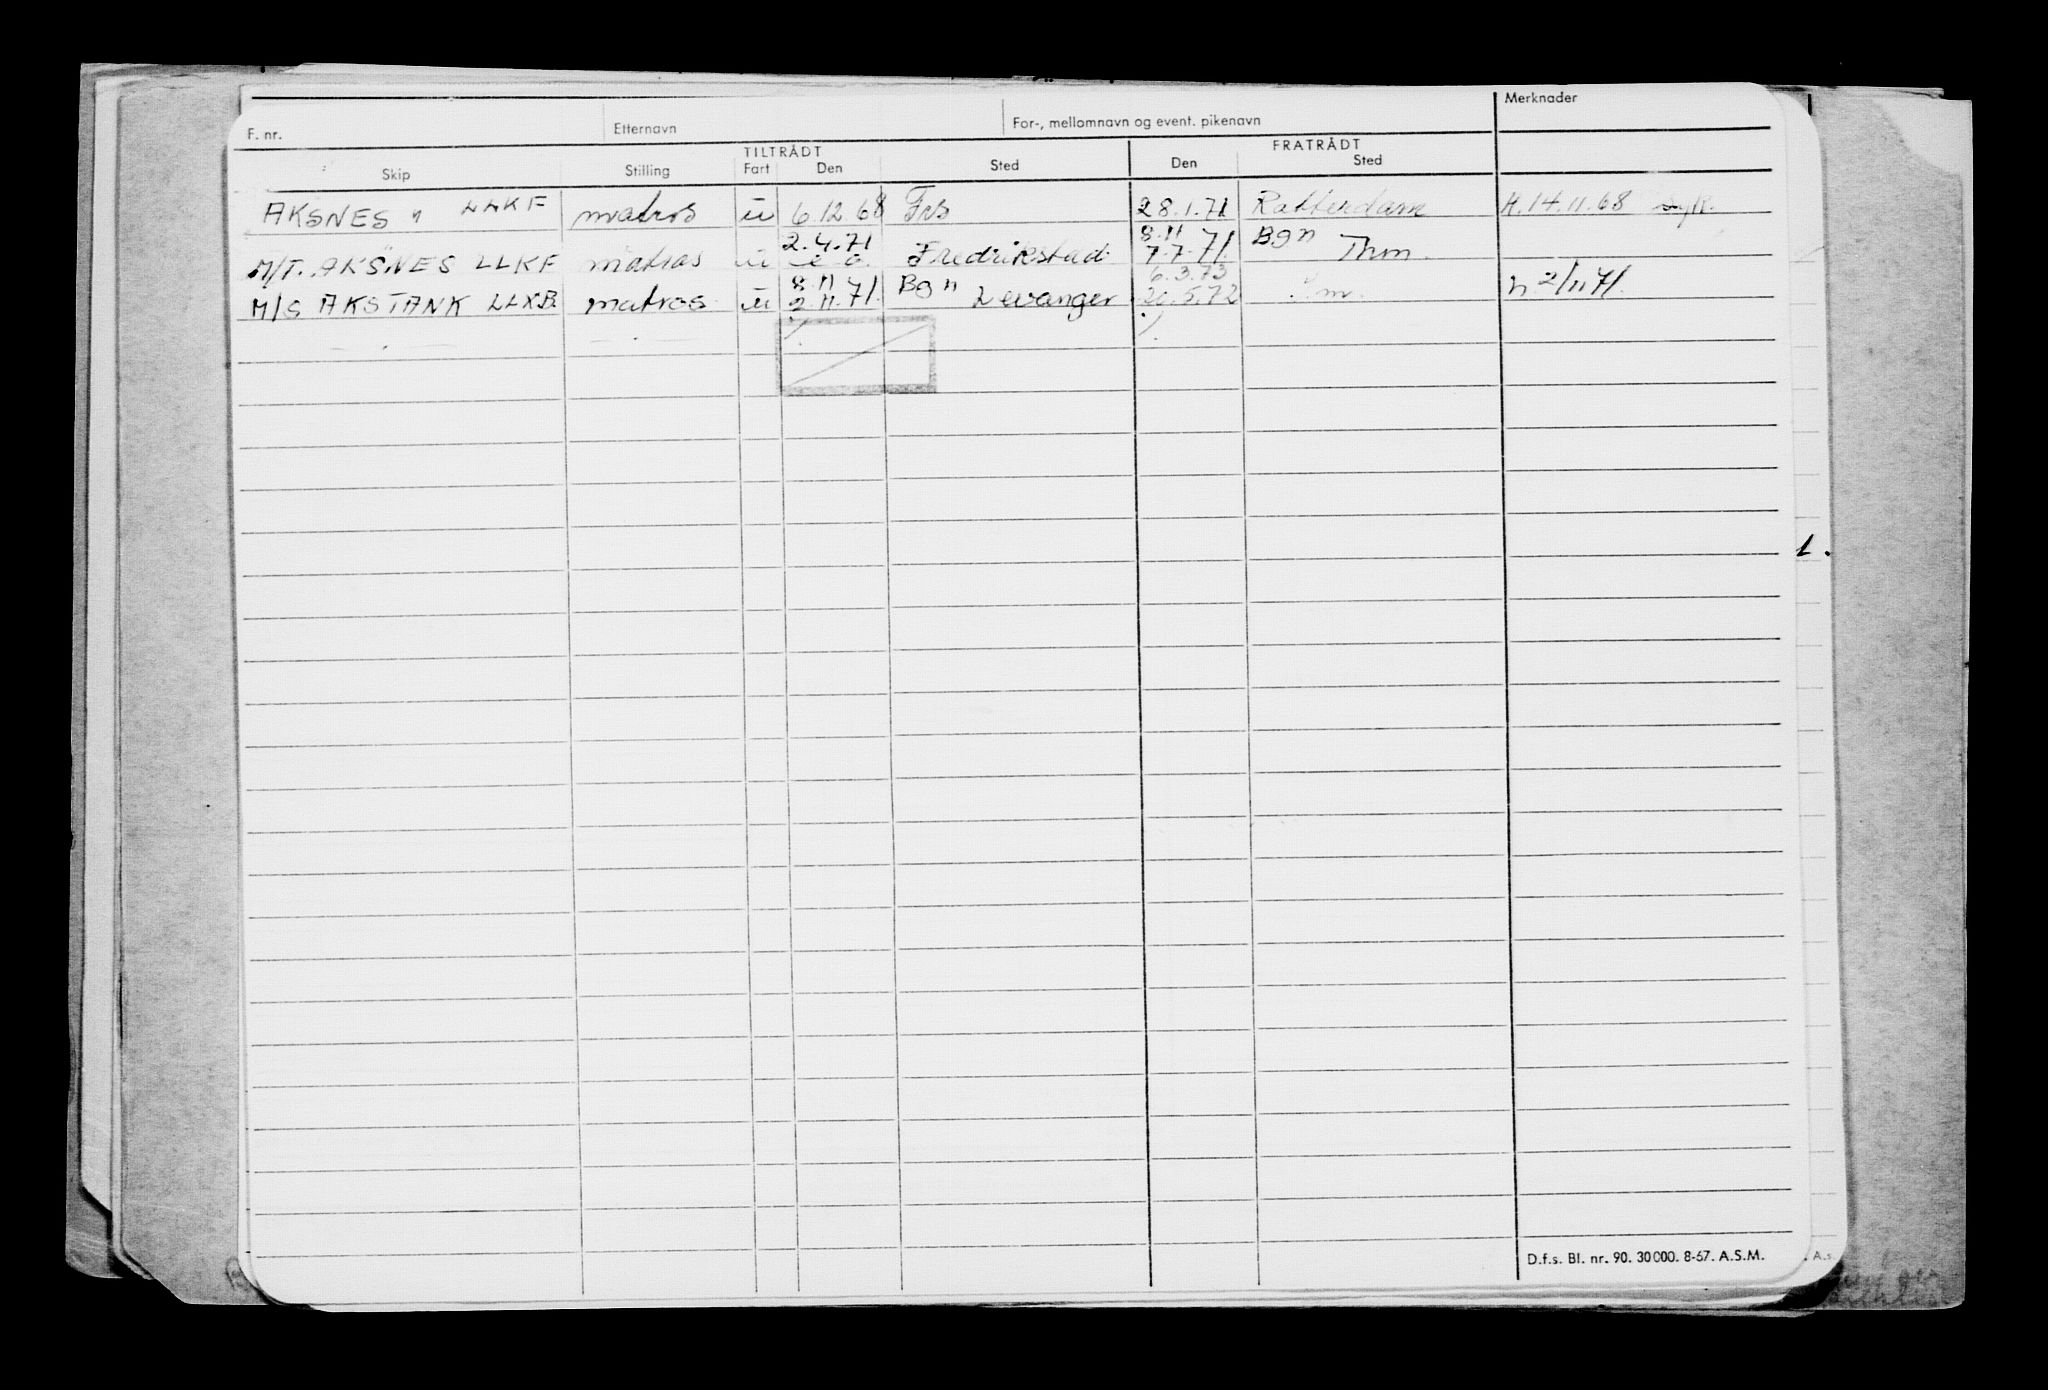 F. nr. Etternavn For-, mellomnavn og event. pikenavn Merknader
TILTRÅDT FRATRÅDT
Skip Stilling Fart Den Sted Den Sted
AKSNES " LLKF matros u 6.12 68 Frs 28.1.71 Rotterdam H.14.11.68
2.4.71 8.11 Bgn
M/T. AKSNES LLKF matros u Fredrikstad 7.7.71. Thm.
8.11 71. Bgn 6.3.73
M/S AKSTANK LLXB matros u 2.11. Levanger 20.5.72 h 2/11 71.
1.
D.f.s. Bl. nr. 90. 30 000. 8-67. A.S.M.
. A.s